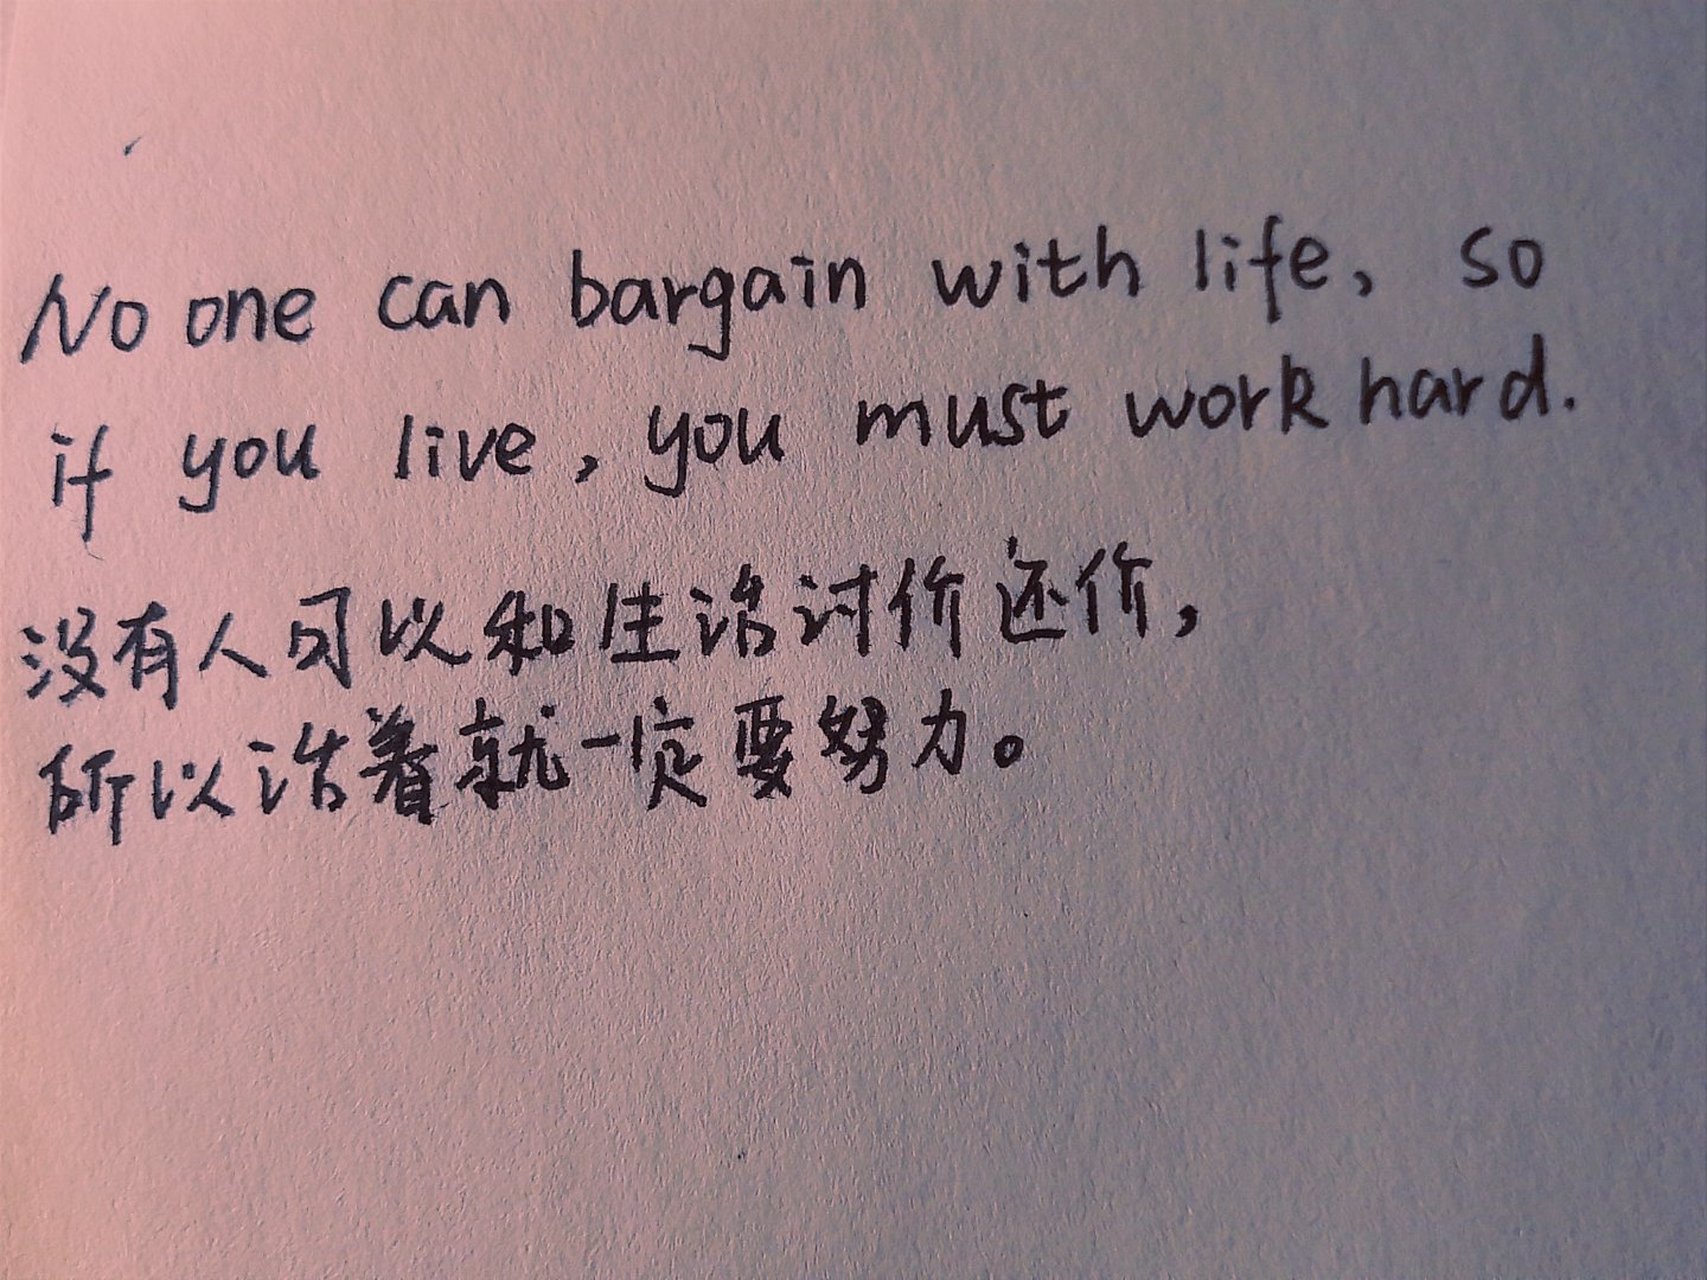 No one can bargain with life, so
if you live, you must work hard.
没有人可以和生活讨价还价,
所以活着就一定要努力。